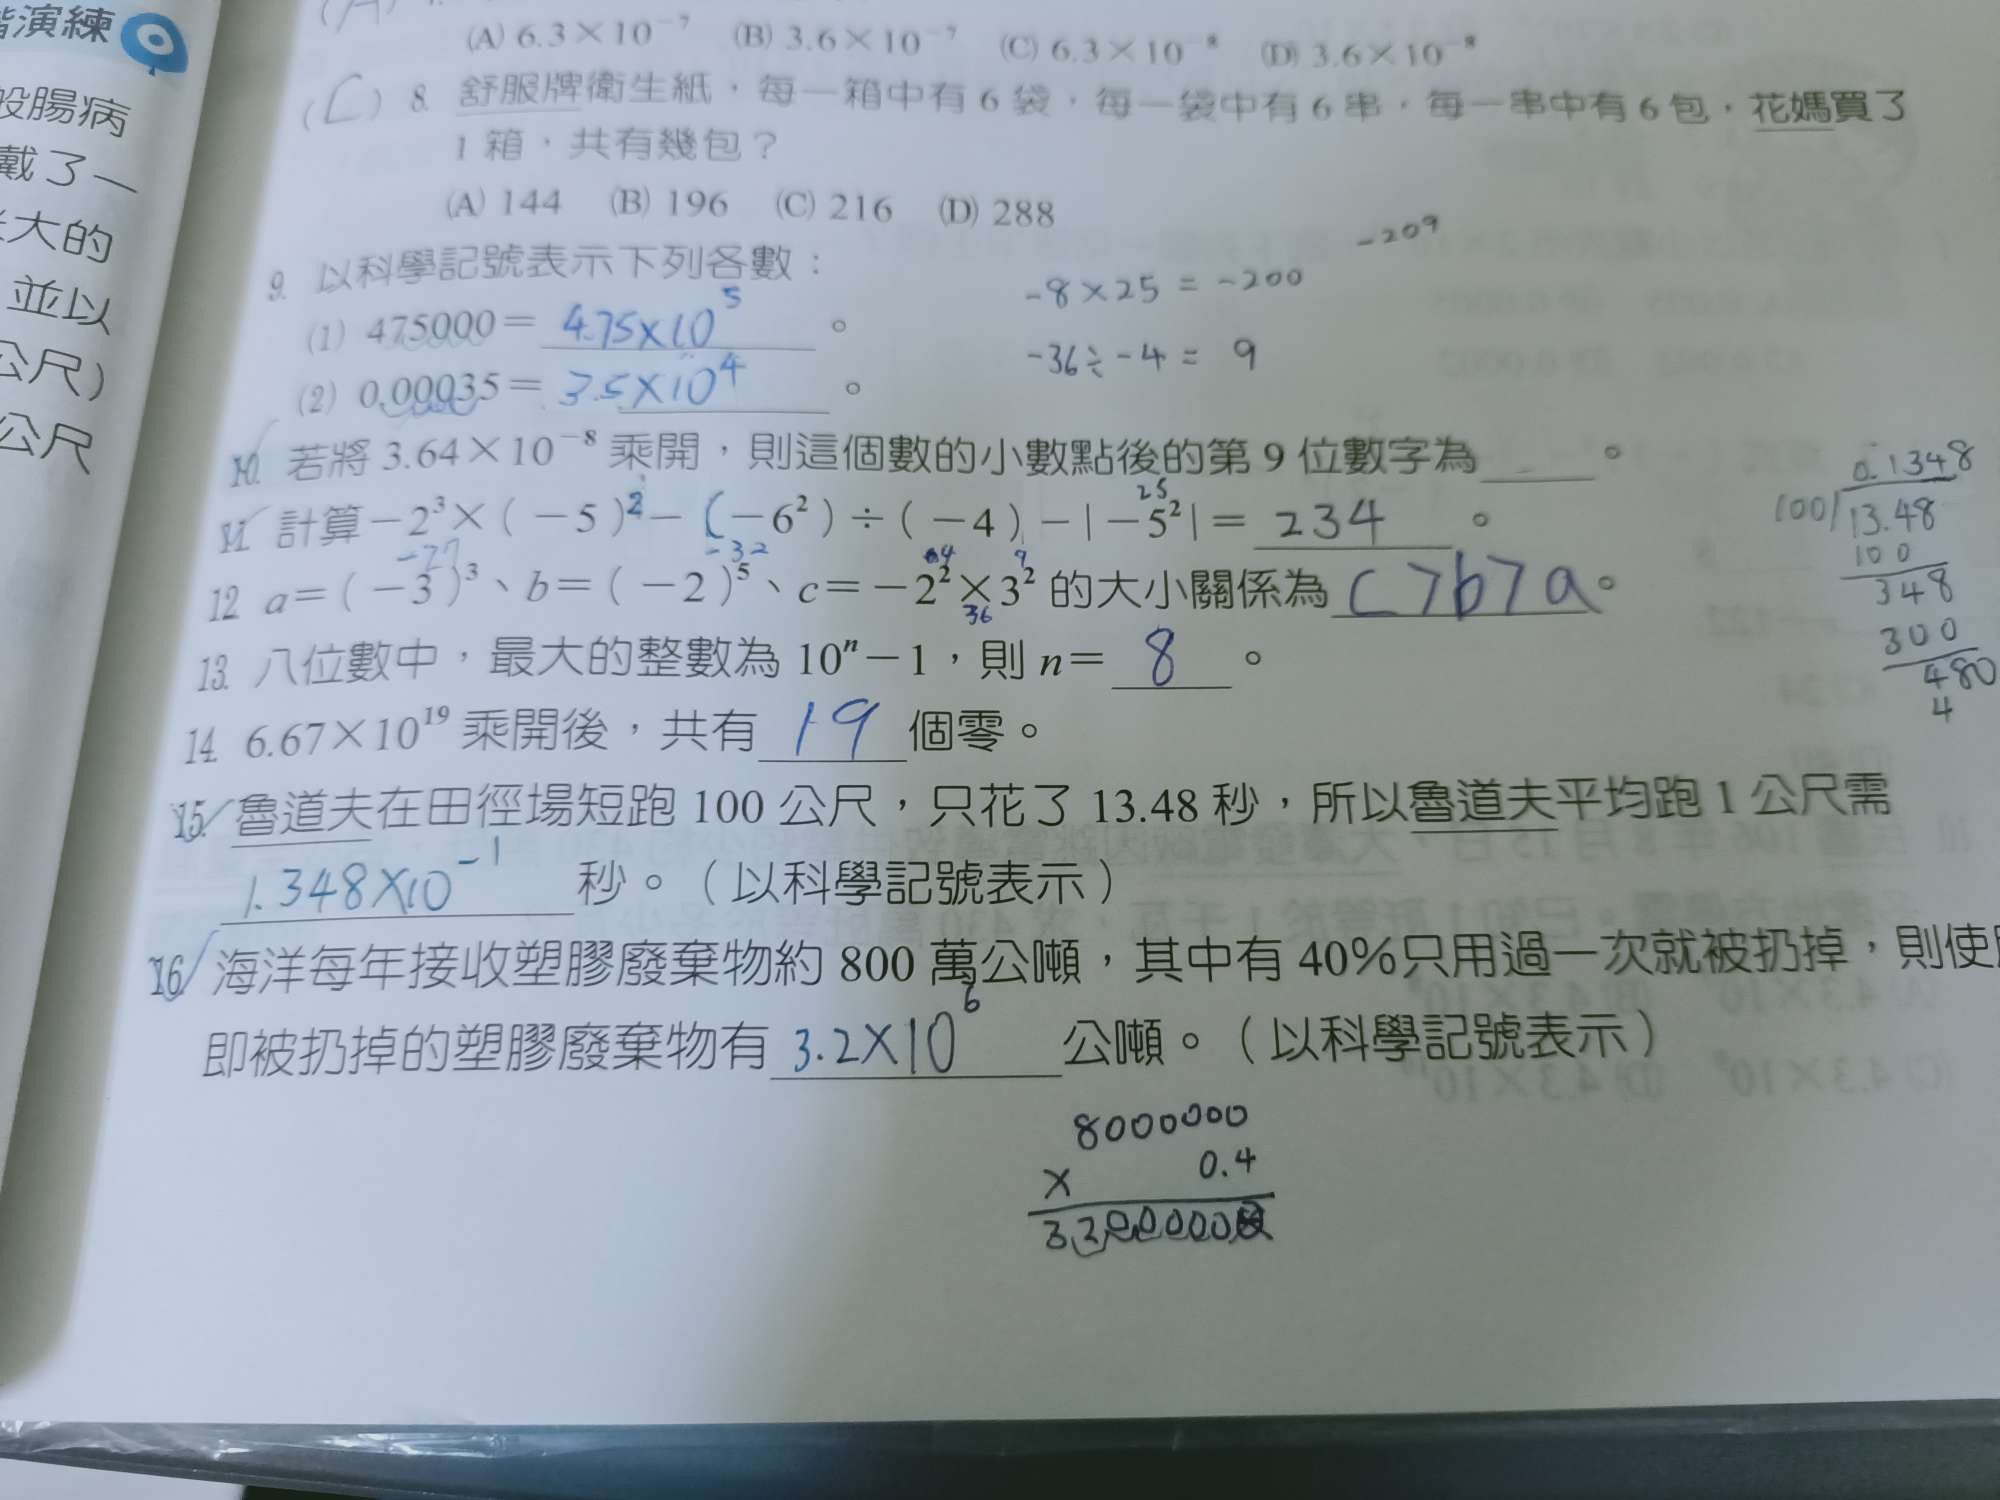 階演練
般腸病
戴了一
大的
並以
公尺)
公尺
(A) 6.3×10⁻⁷ (B) 3.6×10⁻⁷ (C) 6.3×10⁻⁸ (D) 3.6×10⁻⁸
(C) 8. 舒服牌衛生紙，每一箱中有6袋，每一袋中有6串，每一串中有6包，花媽買了
1箱，共有幾包？
(A) 144 (B) 196 (C) 216 (D) 288
9. 以科學記號表示下列各數：
(1) 475000= 4.75×10⁵ 。
(2) 0.00035= 3.5×10⁴ 。
-209
-8×25=-200
-36÷-4= 9
10. 若將 3.64×10⁻⁸ 乘開，則這個數的小數點後的第9位數字為 。
25
11. 計算－2³×(－5)²－(－6²)÷(－4)－|－5²|= 234 。
-27 -32 4 9
12 a=(－3)³、b=(－2)⁵、c=－2²×3² 的大小關係為 c>b>a。
36
13. 八位數中，最大的整數為 10ⁿ－1，則 n= 8 。
14. 6.67×10¹⁹ 乘開後，共有 19 個零。
15. 魯道夫在田徑場短跑 100 公尺，只花了 13.48 秒，所以魯道夫平均跑 1 公尺需
1.348×10⁻¹ 秒。（以科學記號表示）
16. 海洋每年接收塑膠廢棄物約 800 萬公噸，其中有 40%只用過一次就被扔掉，則使
即被扔掉的塑膠廢棄物有 3.2×10⁶ 公噸。（以科學記號表示）
0.1348
100)13.48
100
348
300
480
4
8000000
× 0.4
3200000